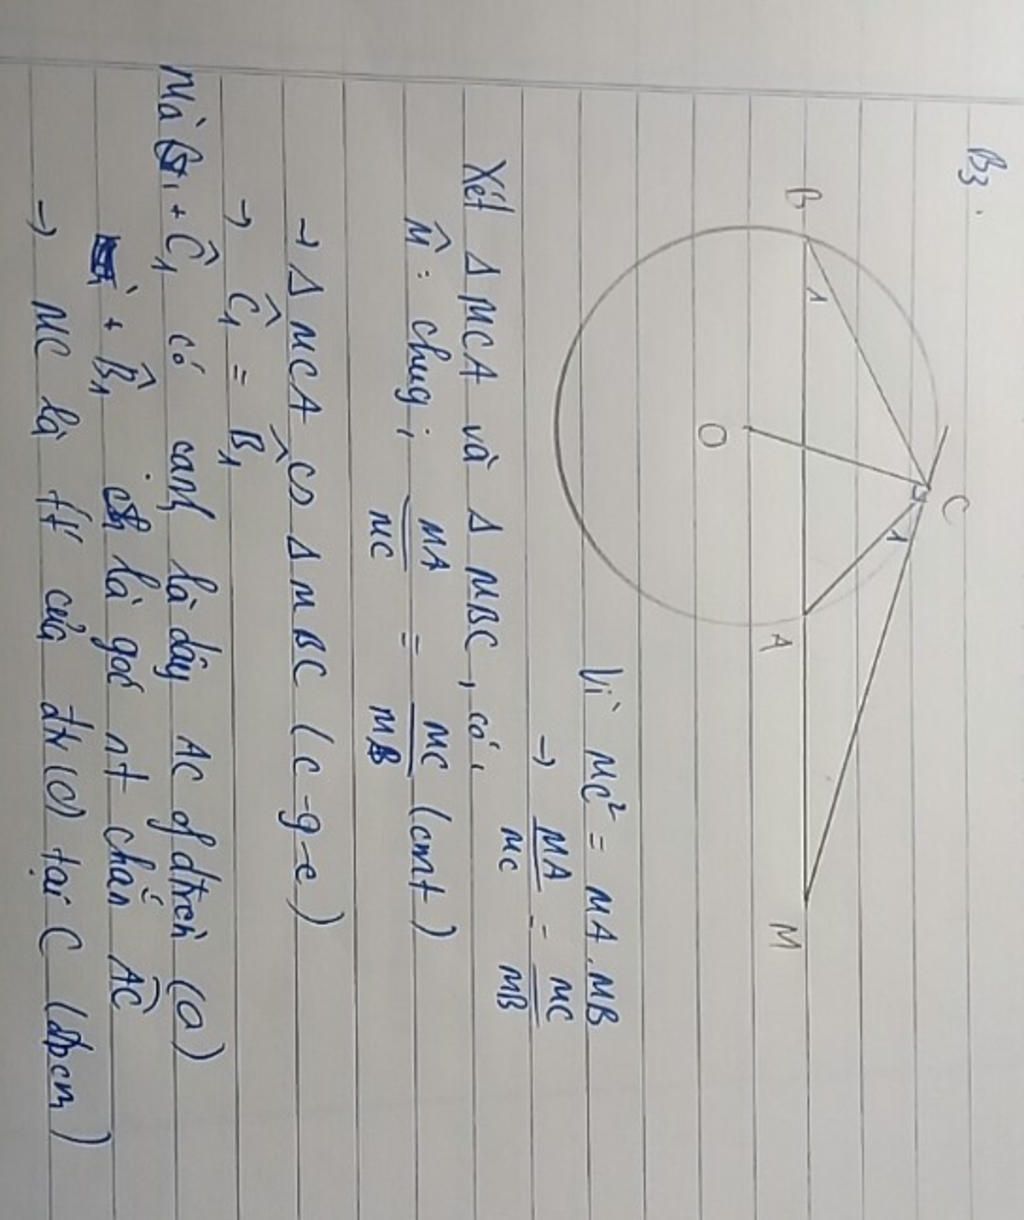 B3.
B
1
C
1
O
A
M
Vì MC² = MA.MB
→ MA/MC = MC/MB
Xét Δ MCA và Δ MBC, có:
M̂ : chug ; MA/MC = MC/MB (cmt)
→ Δ MCA ᔕ Δ MBC (c-g-c)
→ Ĉ₁ = B̂₁
Mà + Ĉ₁ có cạnh là dây AC of đtròn (O)
+ B̂₁ là góc nt chắn AC
→ MC là tt của đtr (O) tại C (đpcm)